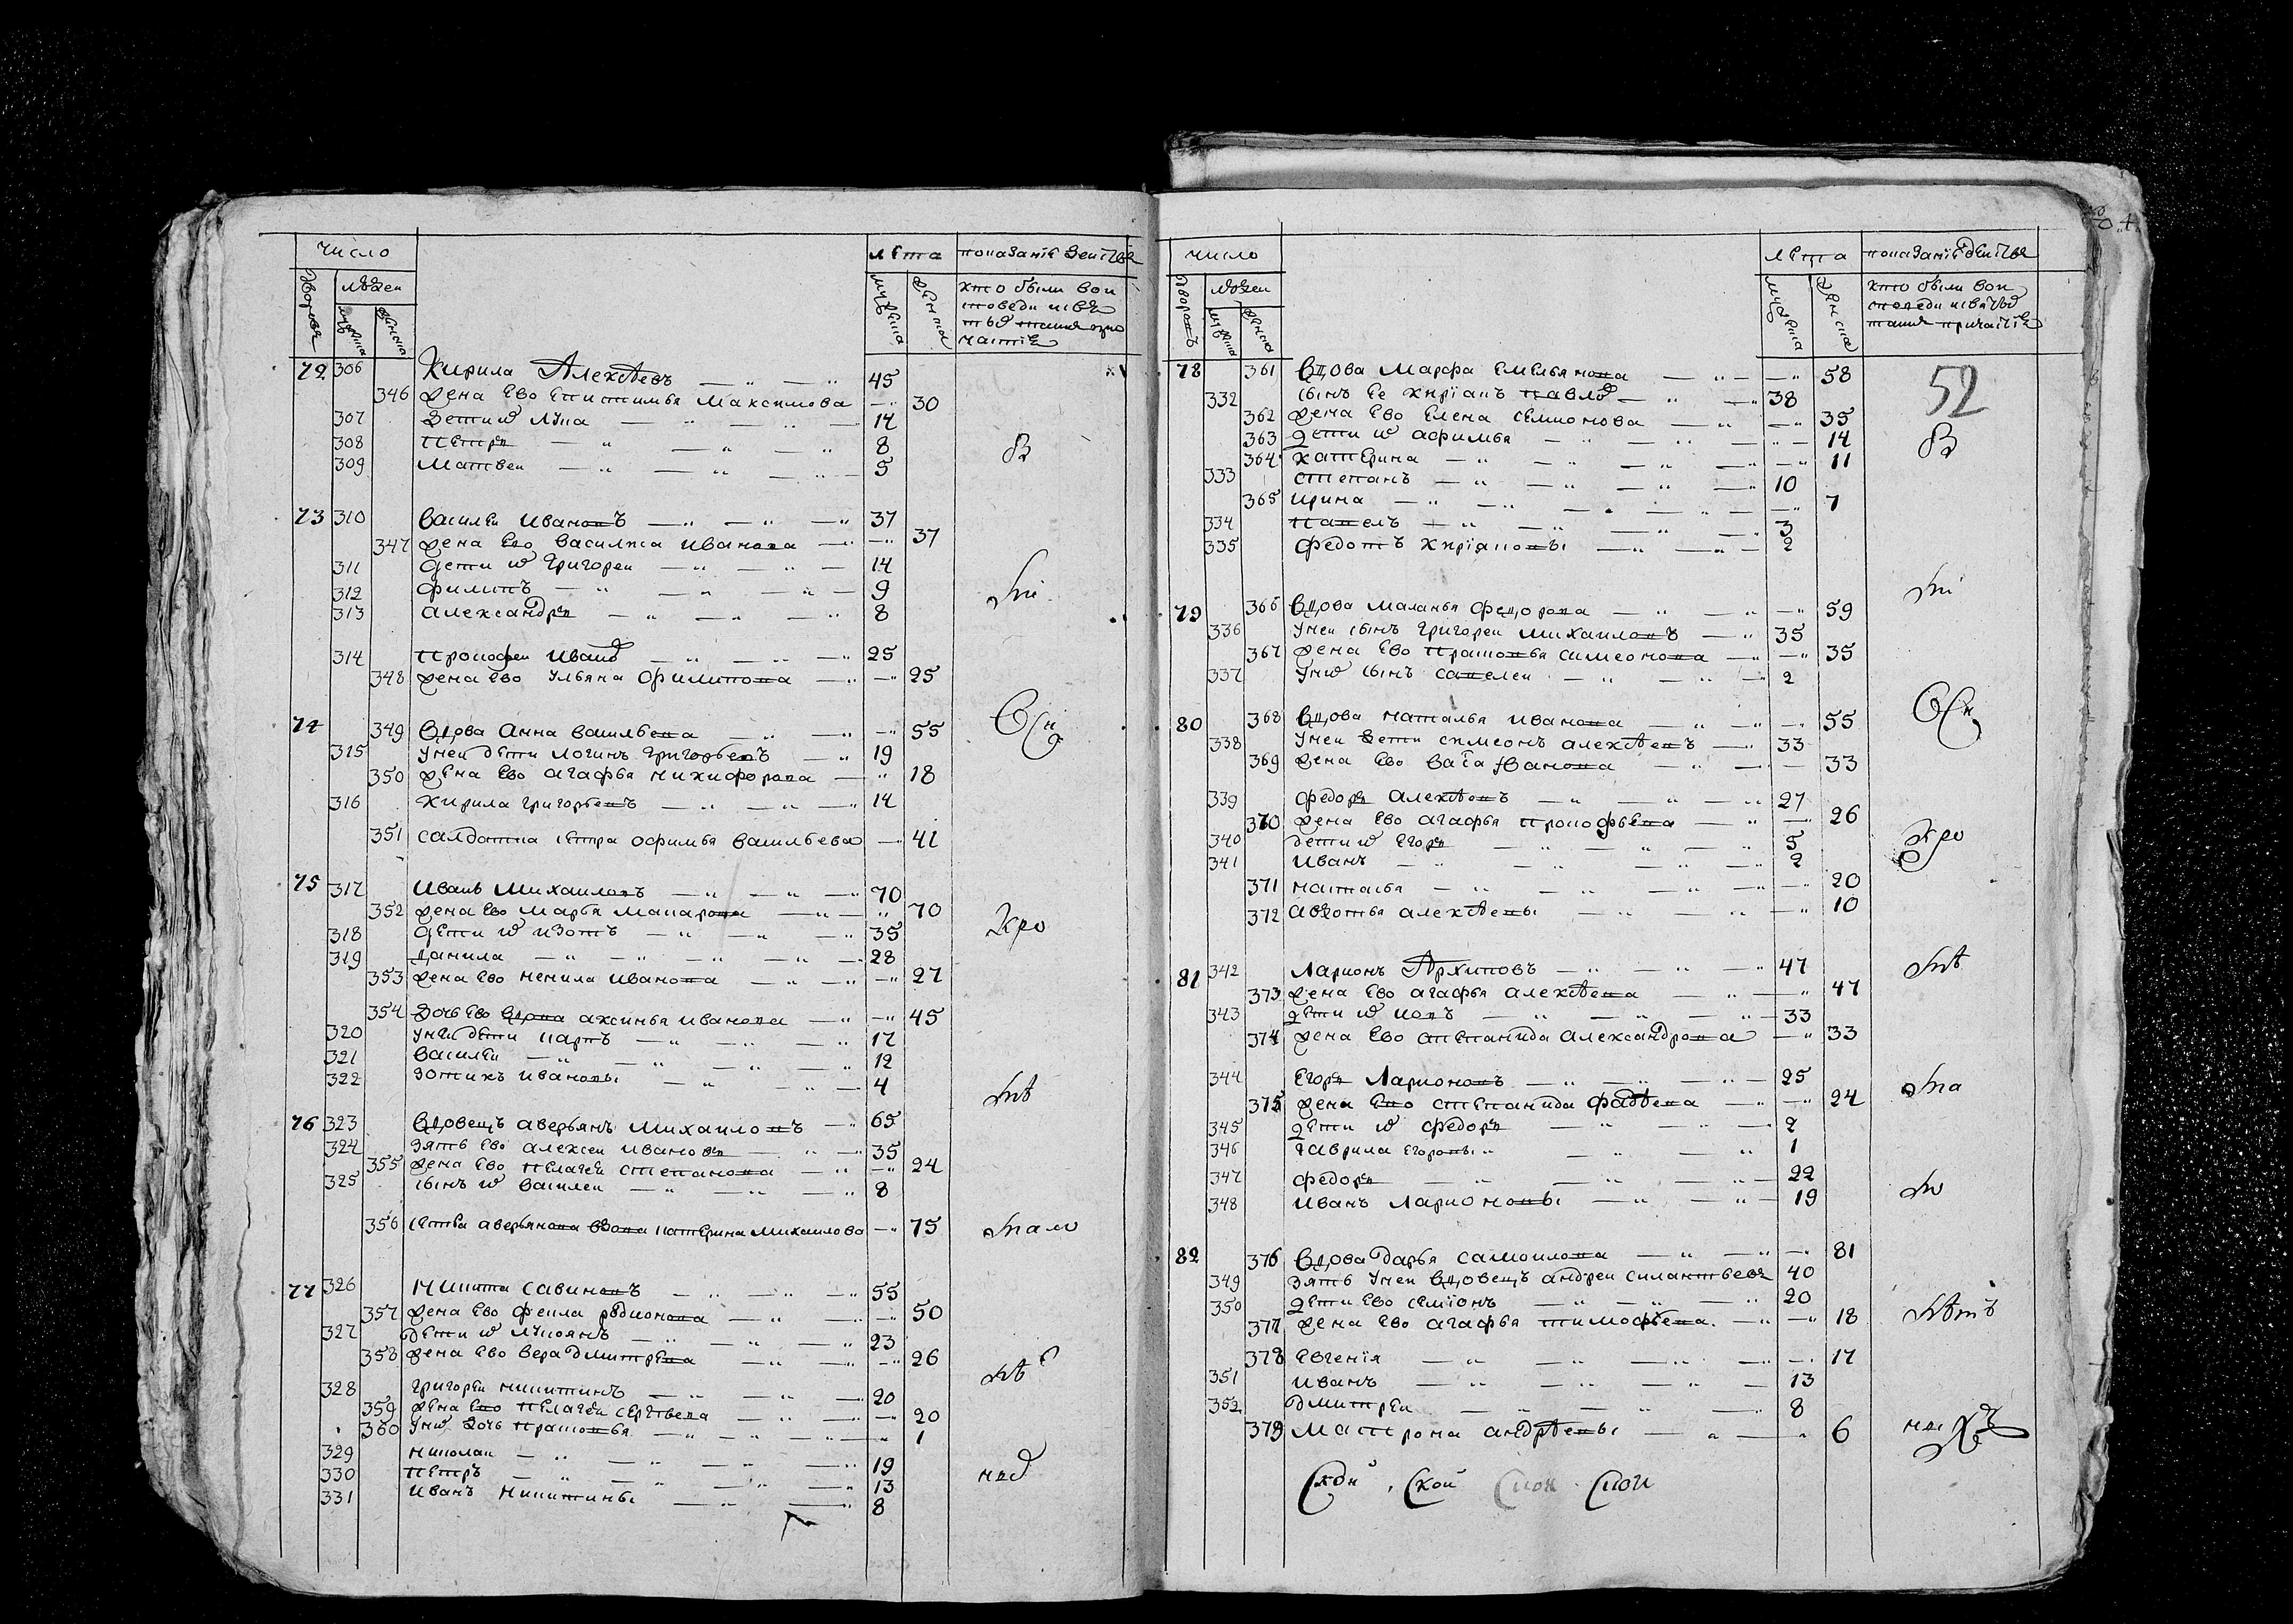 число лѣта показаниѣ деиства
дворовъ людеи мужеска женска кто были во и
мужеска женска
72 306 Кирила Алексѣевъ 45
346 жена ево епистимья Максимова 30
307 дети и҃хъ Лупа 14
308 Петръ 8
309 Матвеи 5
В
73 310 Василеи Ивановъ 37
347 жена ево василиса Иванова 37
311 дети и҃хъ Григореи 14
312 Филипъ 9
313 александръ 8
314 Прокофеи Иванов 25
348 жена ево ульяна Филипова 25
74 349 вдова Анна васильева 55
315 у неи дети Логинъ Григорьевъ 19
350 жена ево агафья никифорова 18
316 Кирила григорьевъ 14
351 салдатка сестра офимья васильева 41
75 317 Иванъ Михаиловъ 70
352 жена ево марья макарова 70
318 дети и҃хъ изотъ 35
319 данила 28
353 жена ево ненила иванова 27
354 дочь ево вдова аксинья иванова 45
320 у неи дети карпъ 17
321 василеи 12
322 зотикъ ивановы 4
76 323 вдовецъ аверьянъ михаиловъ 65
324 зять ево алексеи ивановъ 35
355 жена ево пелагея степанова 24
325 сынъ и҃хъ василеи 8
356 сестра аверьянова вдова катерина михаилова 75
77 326 Никита савиновъ 55
357 жена ево фекла родионова 50
327 дети и҃хъ лукоянъ 23
358 жена ево вера дмитрева 26
328 григореи никитинъ 20
359 жена ево пелагея сергѣева 20
360 у них дочь прасковья 1
329 николаи 19
330 петръ 13
331 иванъ никитины 8
число лѣта показаниѣ деиства
дворовъ людеи мужеска женска кто были во и
мужеска женска
52
78 361 вдова Марфа емельянова 58
332 сынъ ее Кириянъ павлов 38
362 жена ево елена семионова 35
363 дети и҃хъ афимья 14
364 катерина 11
333 степанъ 10
365 ирина 7
334 павелъ 3
335 федотъ кирияновы 2
В
79 366 вдова маланья федорова 59
336 у неи сынъ григореи михаиловъ 35
367 жена ево прасковья симеонова 35
337 у них сынъ савелеи 2
80 368 вдова наталья иванова 55
338 у неи дети симеонъ алексѣевъ 33
369 жена ево васса иванова 33
339 федоръ алексѣевъ 27
370 жена ево агафья прокофьева 26
340 дети и҃хъ егоръ 5
341 иванъ 2
371 наталья 20
372 авдотья алексѣевы 10
81 342 Ларионъ Архиповъ 47
373 жена ево агафья алексѣева 47
343 дети и҃хъ иовъ 33
374 жена ево степанида александрова 33
344 егоръ Ларионовъ 25
375 жена ево степанида фадѣева 24
345 дети и҃хъ федоръ 2
346 гаврила егоровы 1
347 федоръ 22
348 иванъ ларионовы 19
82 376 вдова дарья самоилова 81
349 зять у неи вдовецъ андреи силантьевъ 40
350 дети ево семионъ 20
377 жена ево агафья тимофѣева 18
378 евгения 17
351 иванъ 13
352 дмитреи 8
379 матрона андрѣевы 6